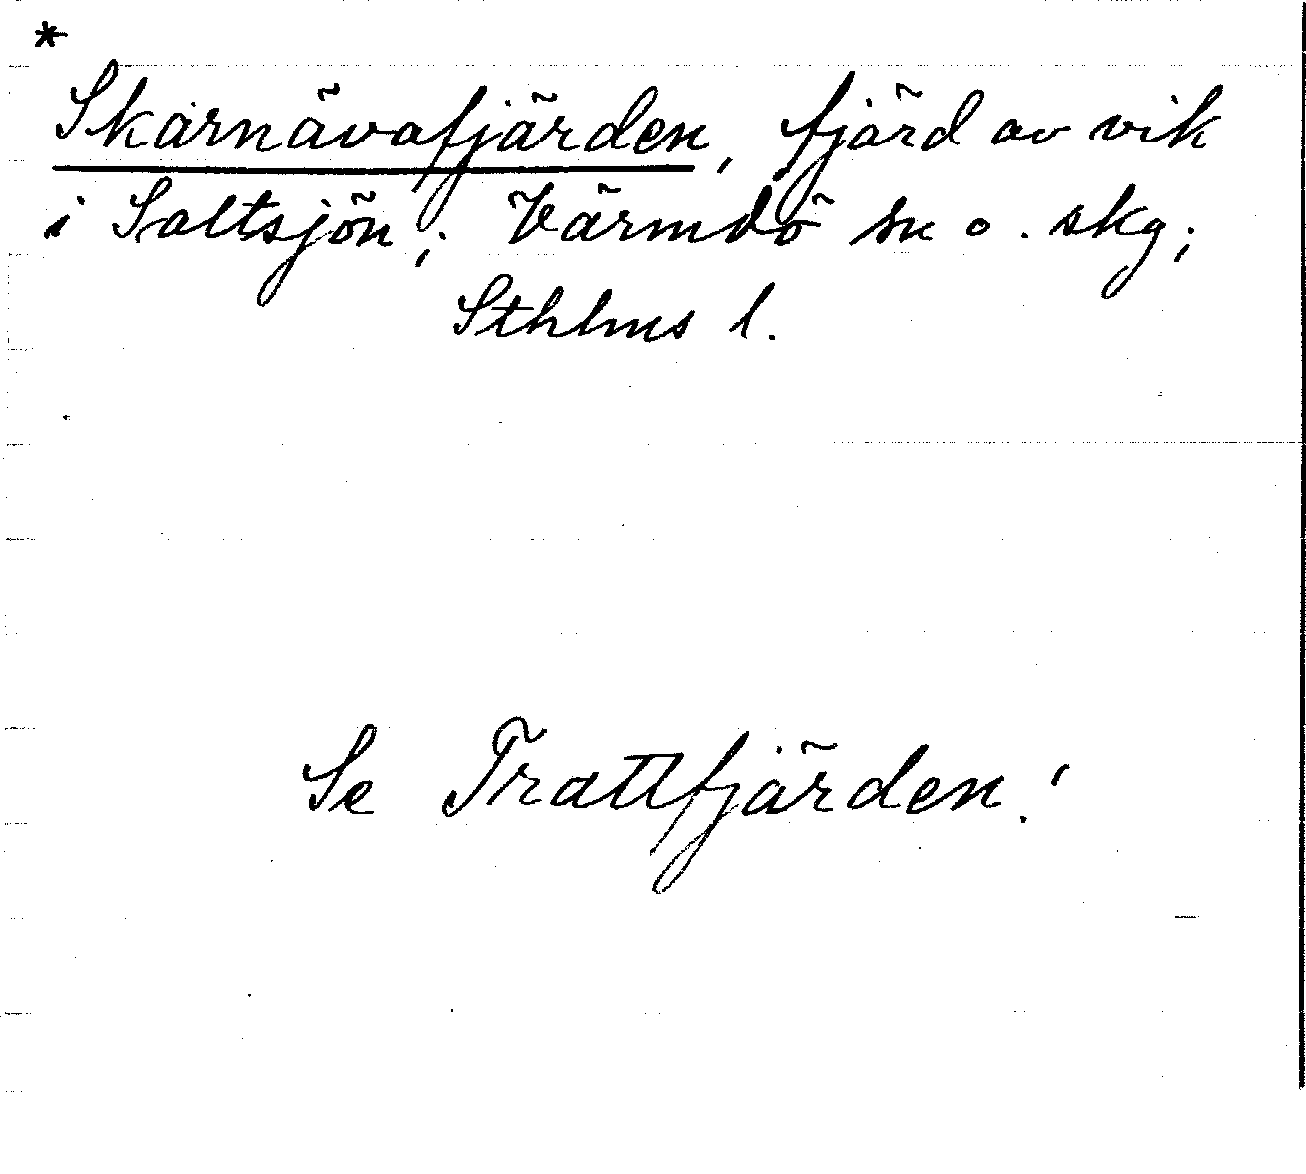 *
Skarnävafjärden, fjärd av vik
i Saltsjön; Värmdö sn o. skg;
Sthlms l.
Se Trattfjärden!